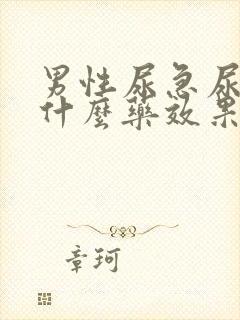 男性尿急尿
什麼藥效果
章珂